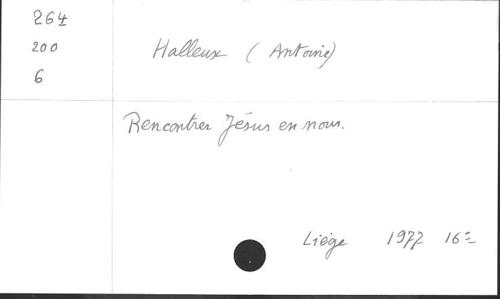 264
200
6
Halleux (Antoine)
Rencontrer Jésus en nous.
Liège 1977 16=